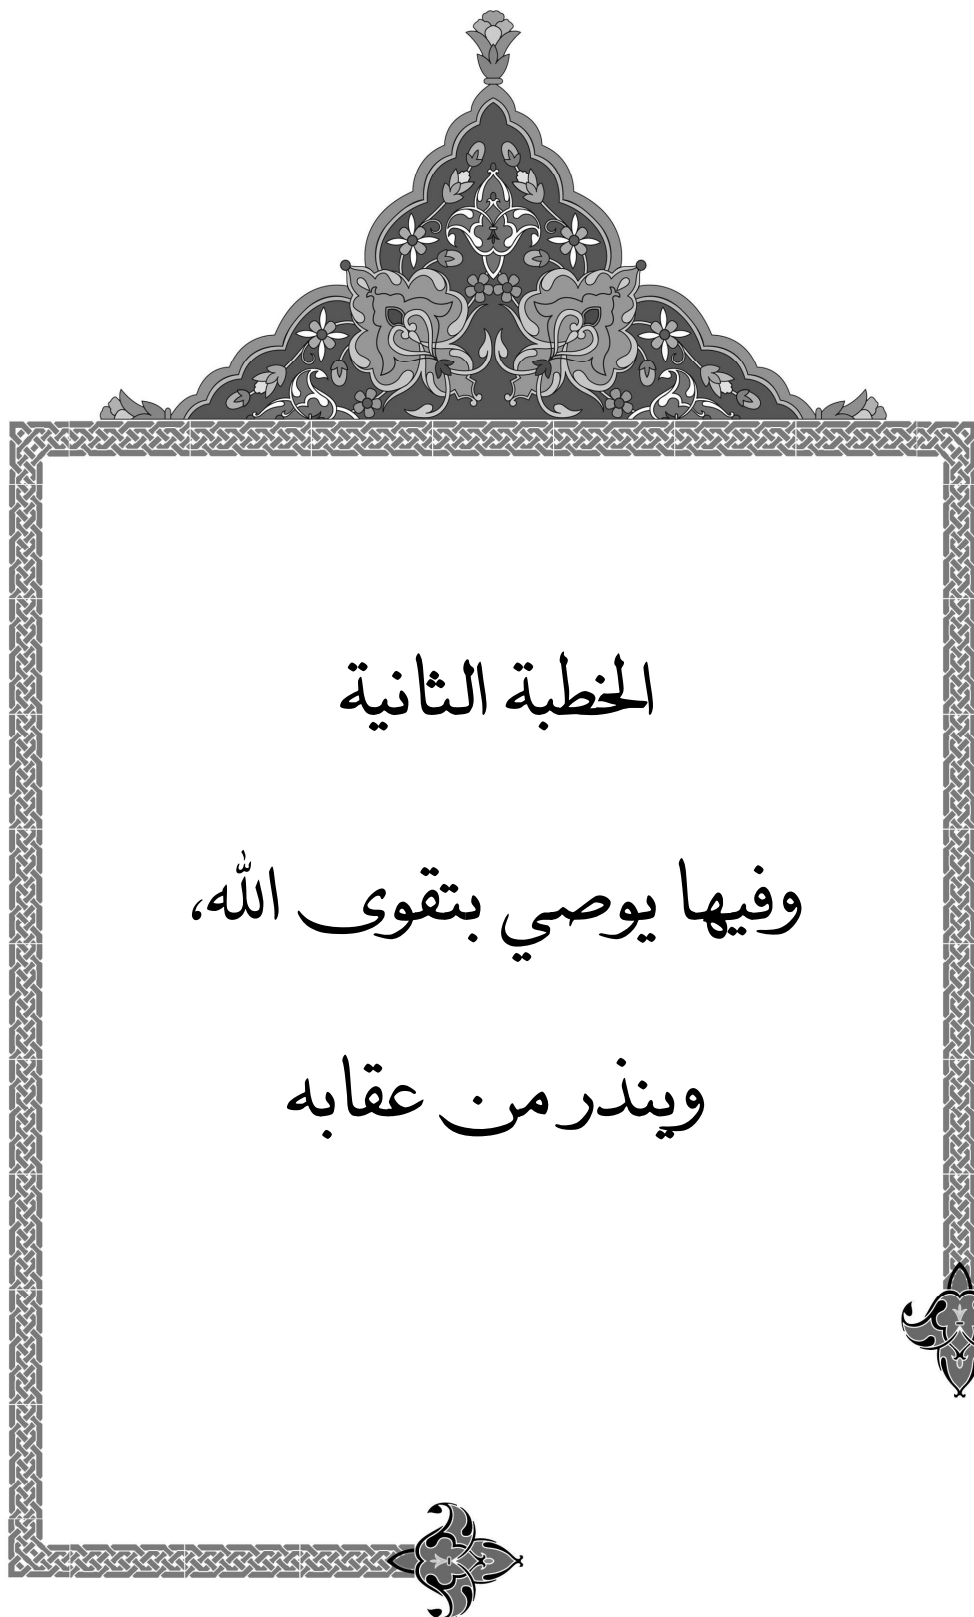 الخطبة الثانية
وفيها يوصي بتقوى الله،
وينذر من عقابه